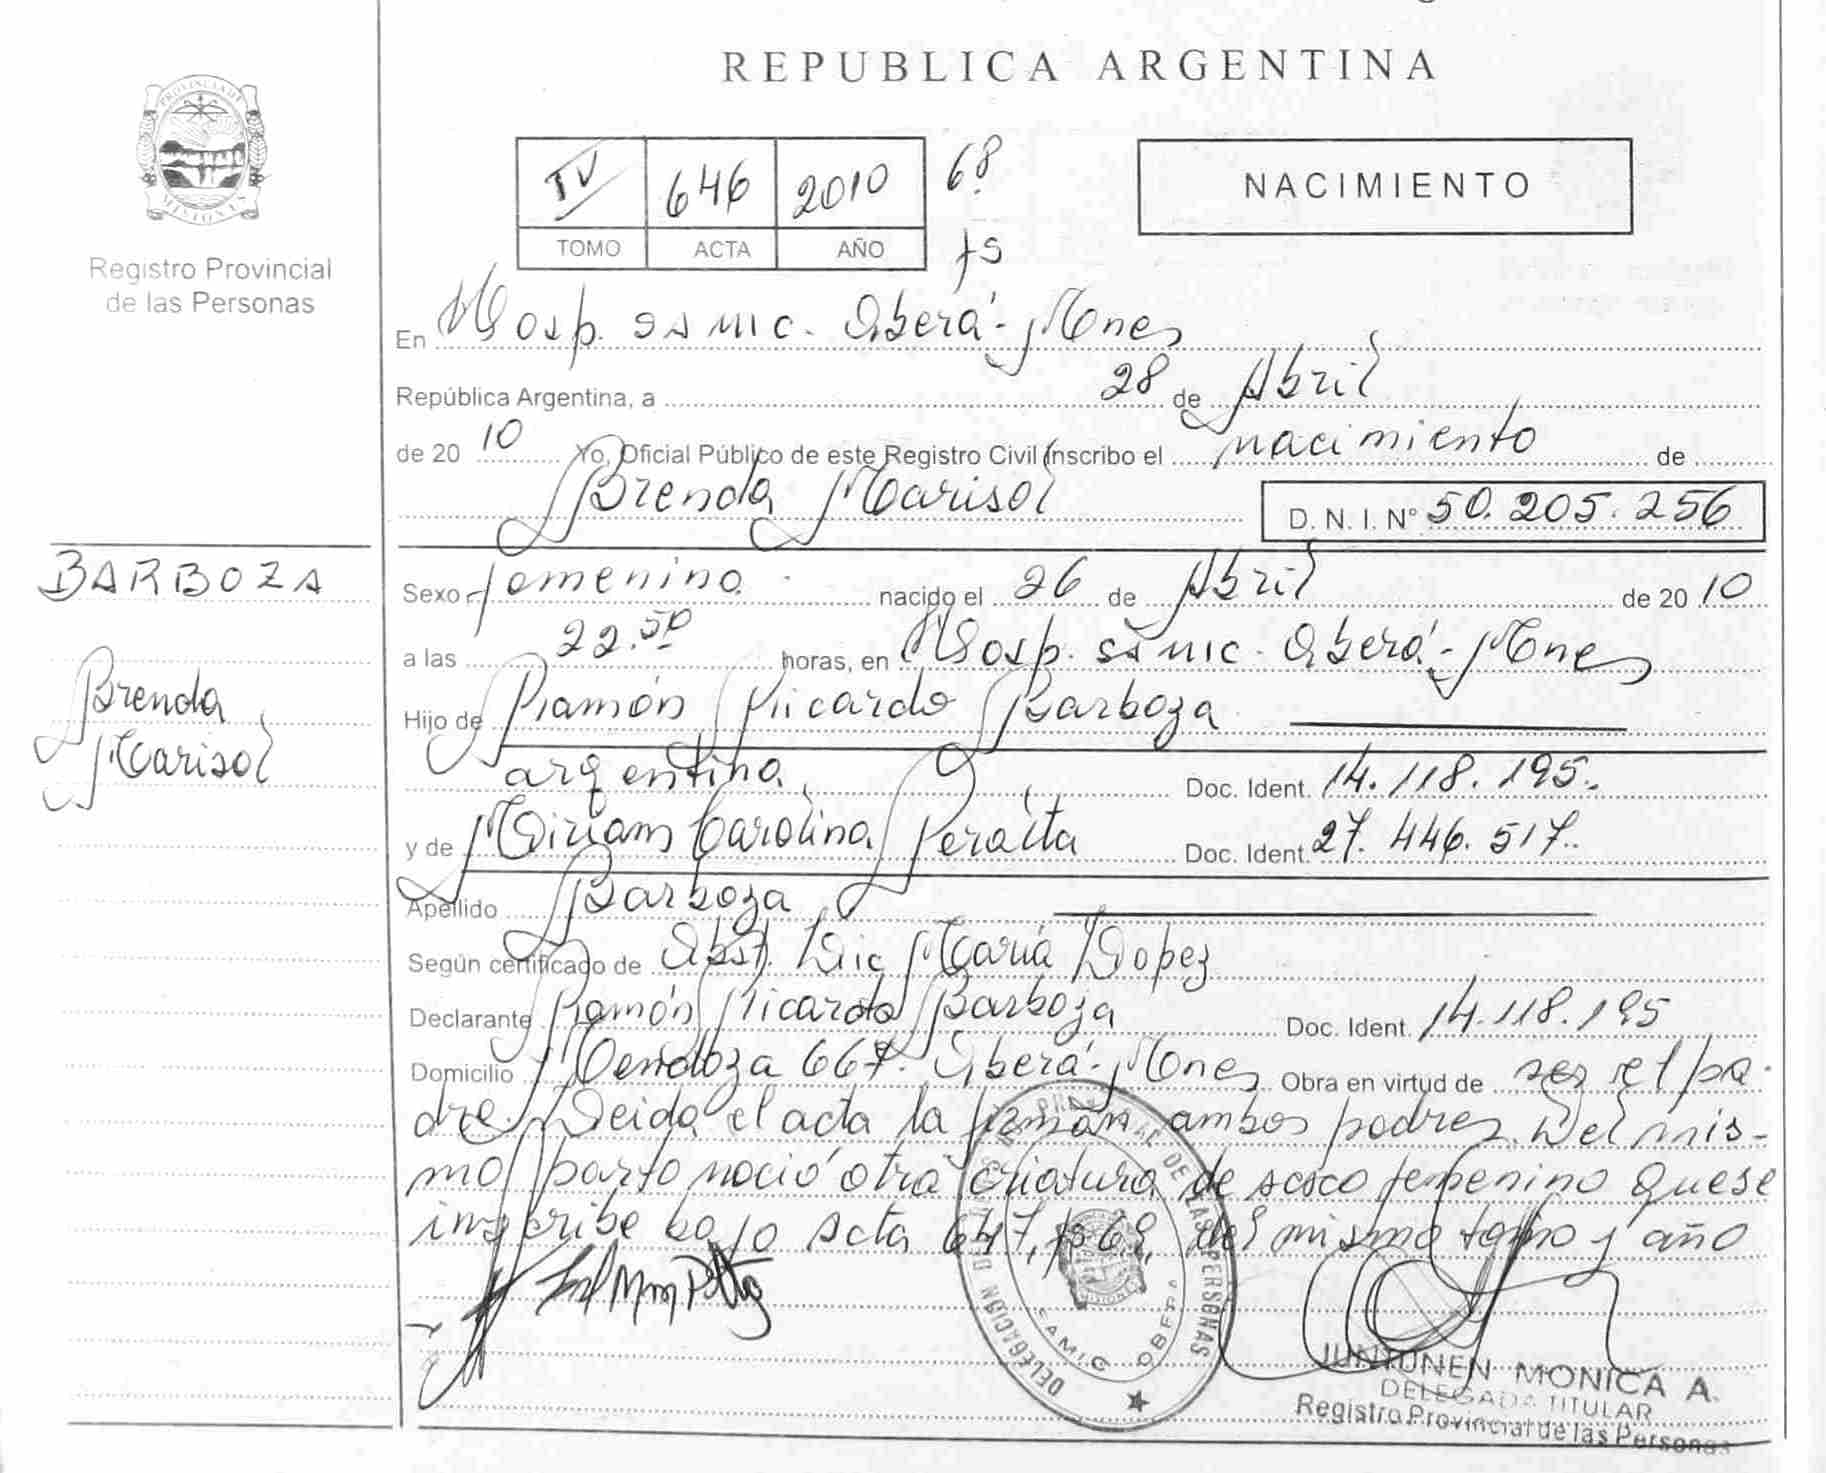 REPUBLICA ARGENTINA
PROVINCIA DE MISIONES
Registro Provincial
de las Personas
IV 646 2010 68
TOMO ACTA AÑO fs
NACIMIENTO
En Hosp. SAMIC. Oberá - Mnes
República Argentina, a 28 de Abril
de 2010 Yo, Oficial Público de este Registro Civil inscribo el nacimiento de
Brenda Marisol D. N. I. N° 50.205.256
BARBOZA
Brenda
Marisol
Sexo femenino nacido el 26 de Abril de 2010
a las 22.50 horas, en Hosp. SAMIC. Oberá - Mnes
Hijo de Ramón Ricardo Barboza
argentina, Doc. Ident. 14.118.195.
y de Miriam Carolina Peralta Doc. Ident. 27.446.517.
Apellido Barboza
Según certificado de Obst. Lic María Lopez
Declarante Ramón Ricardo Barboza Doc. Ident. 14.118.195
Domicilio Mendoza 667. Oberá - Mnes Obra en virtud de ser el pa-
dre. Leida el acta la firman ambos padres. Del mis-
mo parto nació otra criatura de sexo femenino que se
inscribe bajo Acta 647, fs 68, del mismo tomo y año
DELEGACION DE LAS PERSONAS
SAMIC OBERA
JUNTUNEN MONICA A.
DELEGADA TITULAR
Registro Provincial de las Personas